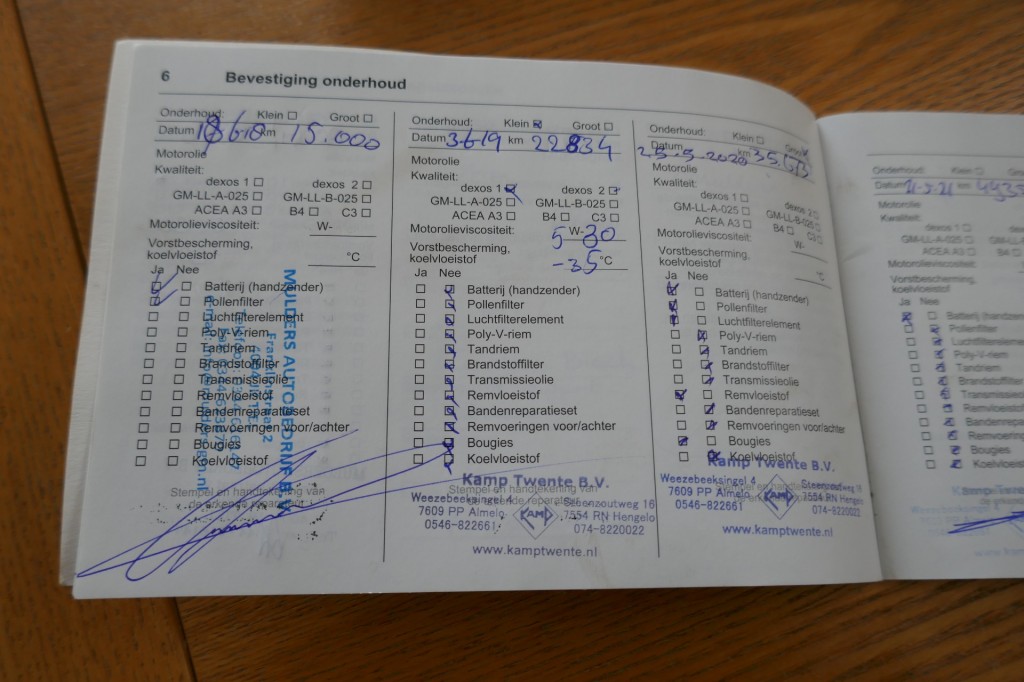 6 Bevestiging onderhoud
Onderhoud: Klein ☐ Groot ☐
Datum km 15.000
Motorolie
Kwaliteit:
dexos 1 ☐ dexos 2 ☐
GM-LL-A-025 ☐ GM-LL-B-025 ☐
ACEA A3 ☐ B4 ☐ C3 ☐
Motorolieviscositeit: W-
Vorstbescherming,
koelvloeistof °C
Ja Nee
Batterij (handzender)
Pollenfilter
Luchtfilterelement
Poly-V-riem
Tandriem
Brandstoffilter
Transmissieolie
Remvloeistof
Bandenreparatieset
Remvoeringen voor/achter
Bougies
Koelvloeistof
Stempel en handtekening van
MULDERS AUTOBEDRIJF B.V.
Onderhoud: Klein ☒ Groot ☐
Datum 3-6-19 km 22834
Motorolie
Kwaliteit:
dexos 1 ☒ dexos 2
GM-LL-A-025 ☐ GM-LL-B-025 ☐
ACEA A3 ☐ B4 ☐ C3 ☐
Motorolieviscositeit: 5 W-30
Vorstbescherming,
koelvloeistof -35 °C
Ja Nee
Batterij (handzender)
Pollenfilter
Luchtfilterelement
Poly-V-riem
Tandriem
Brandstoffilter
Transmissieolie
Remvloeistof
Bandenreparatieset
Remvoeringen voor/achter
Bougies
Koelvloeistof
Kamp Twente B.V.
Stempel en handtekening van
Weezebeeksingel 4 Steenzoutweg 16
7609 PP Almelo KAMP 7554 RN Hengelo
0546-822661 074-8220022
www.kamptwente.nl
Onderhoud: Klein ☐ Groot
Datum 25-5-2020 km
Motorolie
Kwaliteit:
dexos 1 ☐ dexos 2 ☐
GM-LL-A-025 ☐ GM-LL-B-025 ☐
ACEA A3 ☐ B4 ☐ C3 ☐
Motorolieviscositeit: W-
Vorstbescherming,
koelvloeistof °C
Ja Nee
Batterij (handzender)
Pollenfilter
Luchtfilterelement
Poly-V-riem
Tandriem
Brandstoffilter
Transmissieolie
Remvloeistof
Bandenreparatieset
Remvoeringen voor/achter
Bougies
Koelvloeistof
Kamp Twente B.V.
Weezebeeksingel 4 Steenzoutweg 16
7609 PP Almelo KAMP 7554 RN Hengelo
0546-822661 074-8220022
www.kamptwente.nl
Onderhoud: Klein ☐
Datum km
Motorolie
Kwaliteit:
dexos 1 ☐
GM-LL-A-025 ☐
ACEA A3 ☐
Motorolieviscositeit:
Vorstbescherming,
koelvloeistof
Ja Nee
Batterij
Pollenfilter
Luchtfilterelement
Poly-V-riem
Tandriem
Brandstoffilter
Transmissieolie
Remvloeistof